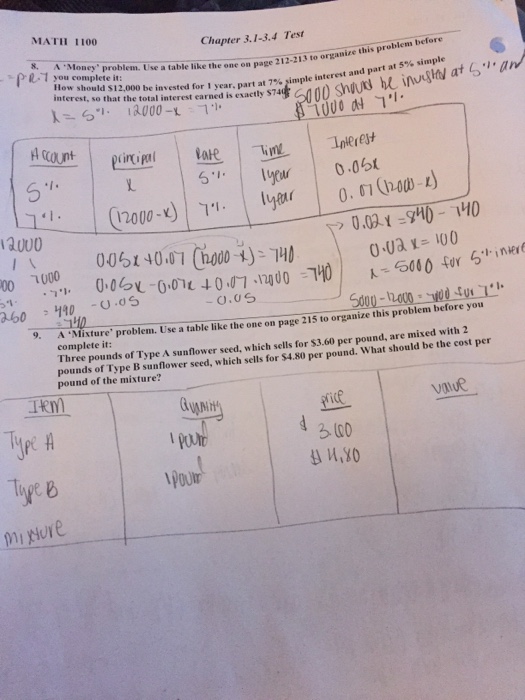 MATH 1100 Chapter 3.1-3.4 Test
8. A 'Money' problem. Use a table like the one on page 212-213 to organize this problem before
you complete it:
How should $12,000 be invested for 1 year, part at 7% simple interest and part at 5% simple
interest, so that the total interest earned is exactly $740
5000 should be invested at 5% and
$7000 at 7%
x = 5% 12000-x = 7%
Account principal Rate Time Interest
5% x 5% 1year 0.05x
7% (12000-x) 7% 1year 0.07(12000-x)
12000
5000 7000
5% .7%
250 + 490
= 740
0.05x+0.07(12000-x)=740
0.05x-0.07x+0.07.12000=740
-0.05 -0.05
→ 0.02x=840-740
0.02x=100
x=5000 for 5% intere
5000-12000=7000 for 7%
9. A 'Mixture' problem. Use a table like the one on page 215 to organize this problem before you
complete it:
Three pounds of Type A sunflower seed, which sells for $3.60 per pound, are mixed with 2
pounds of Type B sunflower seed, which sells for $4.80 per pound. What should be the cost per
pound of the mixture?
Item Quantity price value
Type A 1 pound $ 3.60
Type B 1 pound $ 4.80
mixture